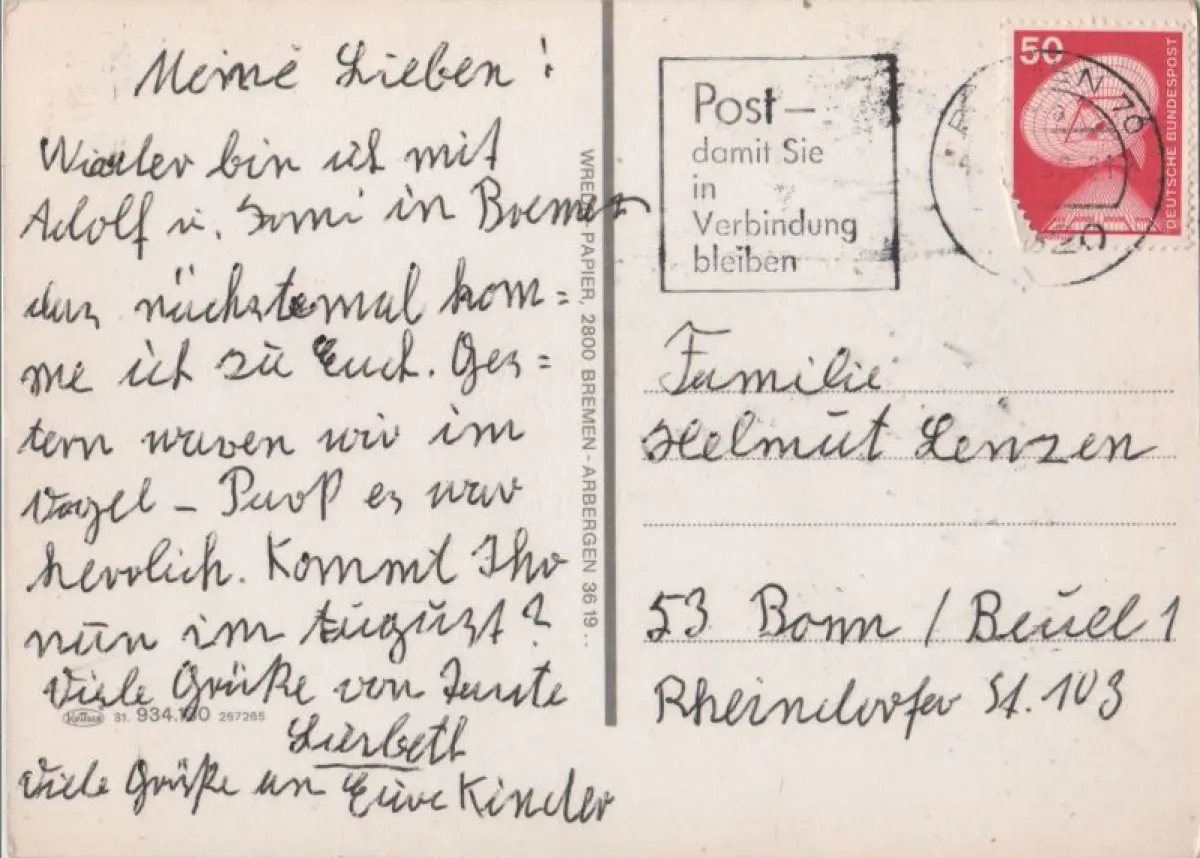 Meine Lieben!
Wieder bin ich mit
Adolf u. Somi in Bremen
das nächstemal kom=
me ich zu Euch. Ges=
tern waren wir im
Vogel - Park es war
herrlich. Kommt Ihr
nun im August?
Viele Grüße von Tante
Liesbeth
Viele Grüße an Eure Kinder
Kettner 31. 934.100 267265
WREDE-PAPIER, 2800 BREMEN-ARBERGEN 36 19 ..
Post –
damit Sie
in
Verbindung
bleiben
50
DEUTSCHE BUNDESPOST
N 70
2820
Familie
Helmut Lenzen
53 Bonn / Beuel 1
Rheindorfer St. 103